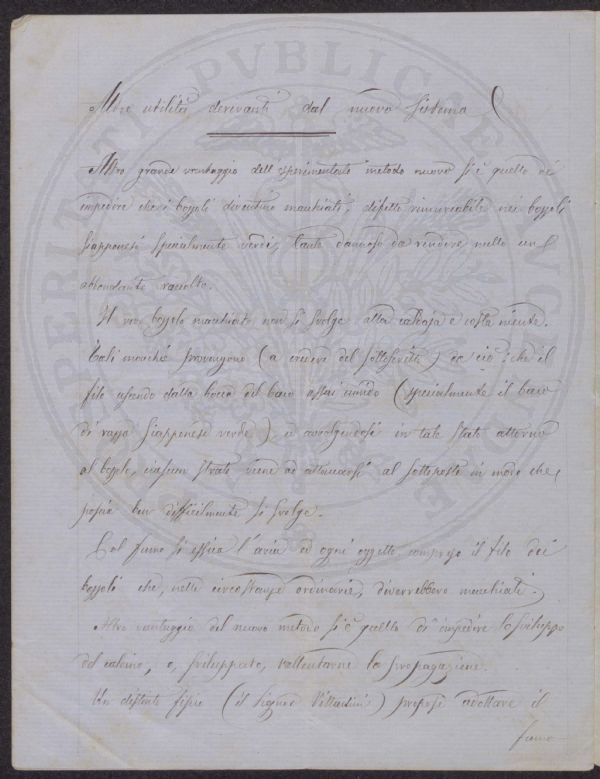 Altre utilità derivanti dal nuovo sistema
Altro grande vantaggio dell'esperimentato metodo nuovo si è quello di
impedire che i bozzoli diventino macchiati, difetto rimarcabile nei bozzoli
giapponesi specialmente verdi, tanto dannoso da rendere nullo un
abbondante raccolto.
Il vero bozzolo macchiato non si svolge alla caldaja e costa niente.
Tali macchie provengono (a credere del sottoscritto) da ciò: che il
filo uscendo dalla bocca del baco assai umido (specialmente il baco
di razza giapponese verde), ed avvolgendosi in tale stato attorno
al bozzolo, ciascun strato viene ad attaccarsi al sottoposto in modo che
poscia ben difficilmente si svolge.
Col fumo si essica l'aria ed ogni oggetto compreso il filo dei
bozzoli che, nelle circostanze ordinarie, diverrebbero macchiati.
Altro vantaggio del nuovo metodo si è quello di impedire lo sviluppo
del calcino, o, sviluppato, rallentarne la propagazione.
Un distinto fisico (il Signor ) propose adottare il
fumo
PUBLICAE